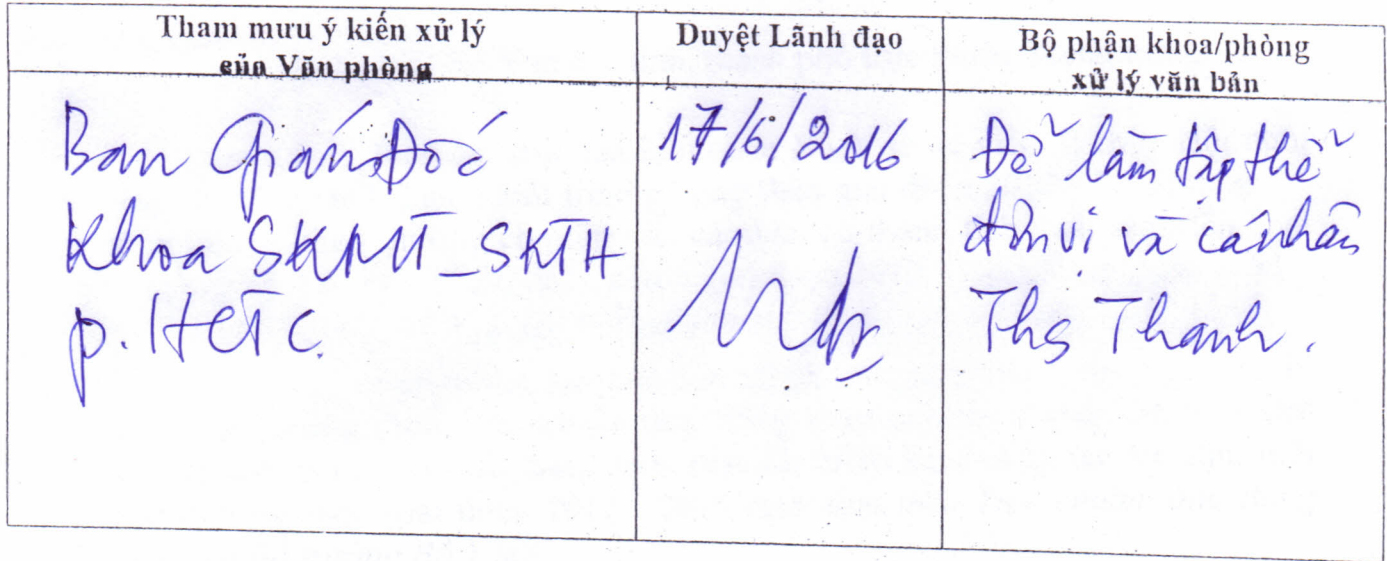 Tham mưu ý kiến xử lý
của Văn phòng
Duyệt Lãnh đạo
Bộ phận khoa/phòng
xử lý văn bản
Ban Giám Đốc
Khoa SKMT_SKTH
p. HCTC.
17/6/2016
Để làm tập thể
đơn vị và cá nhân
Ths Thanh.